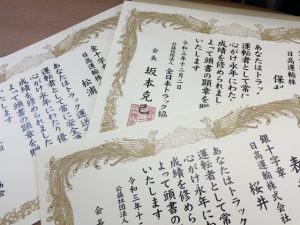 日高運輸株
保和
あなたはトラック
運転者として常に
心がけ永年にわた
成績を修められまし
よって頭書の顕章を
いたします
令和三年十二月一日
公益社団法人 全日本トラック協
会長 坂本克己
金十字章
日高運輸
松浦
あなたはトラッ
運転者として常に安全
心がけ永年にわたり優
成績を修められま
よって頭書の
いたします
表
銀十字章
日高運輸株式会社
桜井
あなたはトラッ
運転者として常
心がけ永年にわ
成績を修められ
よって頭書の
いたします
令和三年十
公益社団法人
会長